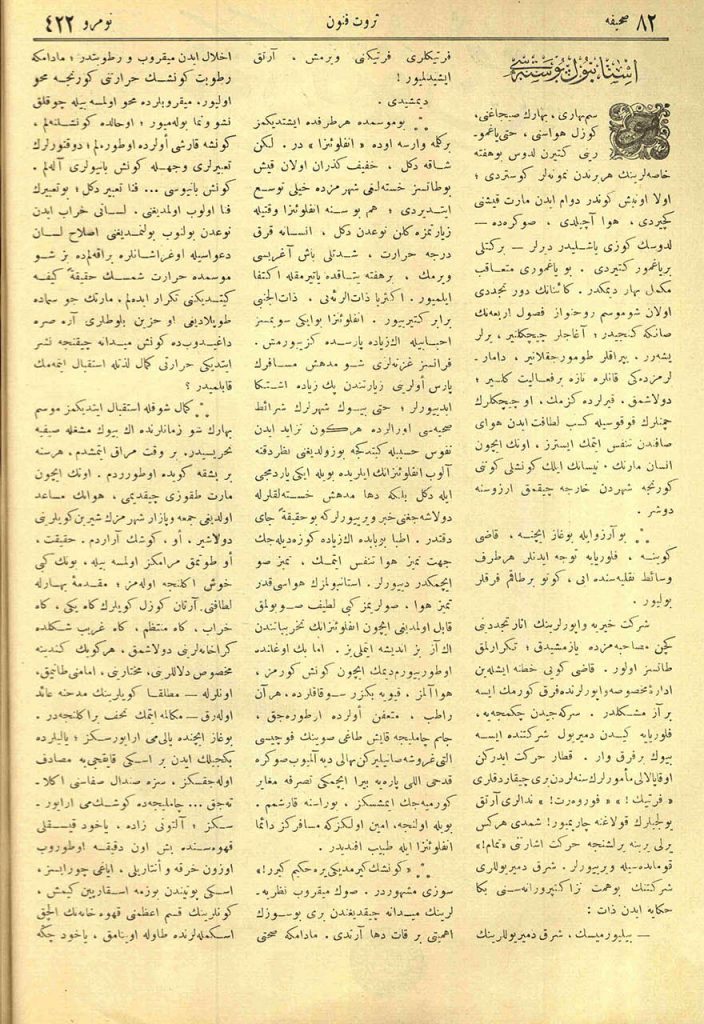 صحیفه ٨٢
ثروت فنون
نومرو ٤٢٢
استانبول پوسته‌سی
سم بهاری ، بهارك صیجاغنی ،
كوزل هواسنی ، حتی یاغمو-
رینی كتیرن لدوس بوهفته
خاصه لرینك هربرندن نمونه لر كوستردی ؛
اولا اون بش كوندر دوام ایدن مارت قیشنی
كچیردی ، هوا آچیلدی ، صوكره ده —
لدوسك كوزی یاشلیدر دیرلر — بركتلی
بر یاغمور كتیردی . بو یاغموری متعاقب
مكمل بهار دیمكدر . كائناتك دور تجددی
اولان شو موسم روحنواز فصول اربعه نك
صانكه كنجیدر ؛ آغاجلر چیچكلنیر ، یرلر
یشه رر . یپراقلر طومورجقلانیر ، دامار-
لرمزده كی قانلره تازه بر فعالیت كلیر ؛
دولاشمق ، قیرلرده كزمك ، او چیچكلرك
چمنلرك قوقوسیله كسب لطافت ایدن هوای
صافدن تنفس ایتمك ایسترز ، اونك ایچون
انسان مارتك ٠ نیسانك ایلك كونشلی كوننی
كورنجه شهردن خارجه چیقمق آرزوسنه
دوشر .
بو آرزو ایله بوغاز ایچنه ، قاضی
كوینه ، فلوریایه توجه ایدنلر هر طرف
وسائط نقلیه سنده ایی ، كوتو بر طاقم فرقلر
بولیور .
شركت خیریه واپورلرینك آثار تجددینی
كچن مصاحبه مزده یازمشیدق ؛ تكرارلمق
طاتسز اولور . قاضی كویی خطنه ایشله ین
ادارهٔ مخصوصه واپورلرنده فرق كورمك ایسه
بر آز مشكلدر . سركه جیدن چكمجه یه ،
فلوریایه كیدن دمیریول شركتنده ایسه
بیوك بر فرق وار . قطار حركت ایدركن
اوقاپالالی مأمورلرك سنه لردن بری چیقاردقلری
« فرتیك ! » « فورورت ! » ندالری آرتق
یولجیلرك قولاغنه چارپمیور ! شمدی هركس
یرلی یرینه یرلشنجه حركت اشارتنی « تمام ! »
قومانده سیله ویریورلر . شرق دمیریوللری
شركتنك بو همت نزاكتپرورانه سنی بكا
حكایه ایدن ذات :
— بیلیورمیسك ، شرق دمیریوللرینك
فرتیكلری فرتیكنی ویرمش ، آرتق
ایشیدلمیور !
دیمشیدی .
بو موسمده هر طرفده ایشتدیكمز
بر كلمه وارسه اوده « انفلوئنزا » در . لكن
شاقه دكل ، خفیف كذران اولان قیش
بو طاتسز خسته لغی شهرمزده خیلی توسیع
ایتدیردی ؛ هم بو سنه انفلوئنزا وقتیله
زیارتمزه كلن نوعدن دكل ، انسانه قرق
درجه حرارت ، شدتلی باش آغریسی
ویرمك ، بر هفته یتاقده یاتیرمقله اكتفا
ایلمیور . اكثریا ذات الرئه یی . ذات الجنبی
برابر كتیریور ! انفلوئنزا بو ایكی سویمسز
احبابیله اك زیاده پارسده كزییورمش .
فرانسز غزته لری شو مدهش مسافرك
پارس اولرینی زیارتندن پك زیاده اشتكا
ایدییورلر ؛ حتی بیوك شهرلرك شرائط
صحیه سی اورالرده هر كون تزاید ایدن
نفوس حسبیله كیتدكجه بوزولدیغی نظر دقته
آلوب انفلوئنزانك ایلریده بویله ایكی یاردمجی
ایله دكل بلكه دها مدهش خسته لقلرله
دولاشه جغنی خبر ویرییورلر كه بو حقیقةً جای
دقتدر . اطبا بو بابده اك زیاده كوزه دیله جك
جهت تمیز هوا تنفس ایتمك ، تمیز صو
ایچمكدر دیییورلر . استانبولمزك هواسی قدر
تمیز هوا ، صولریمز كبی لطیف صو بولمق
قابل اولمدیغی ایچون انفلوئنزانك تخریباتندن
اك آز بز اندیشه ایتملی یز . اما بك اوغلنده
اوطورییورم دیمك ایچون كونش كورمز ،
هوا آلمز ، قیویه بكزر سوقاقلرده ، هر آن
راطب ، متعفن اولرده اوطوره جق ،
جانم چاملیجه قایش طاغی صوینك فوچیسی
آلتی غروشه صاتیلیركن بهالی دیه آلمیوب صوكره
قدحی اللی پاره یه بیرا ایچمكی تصرفه مغایر
كورمیه جك ایمشسكز ، بوراسنه قارشمم .
بویله اولنجه ، امین اولكز كه مسافركز دائما
انفلوئنزا ایله طبیب افندیدر .
« كونشك كیرمدیكی یره حكیم كیرر ! »
سوزی مشهوردر . صوك میقروب نظریه-
لرینك میدانه چیقدیغندن بری بو سوزك
اهمیتی بر قات دها آرتدی . مادامكه صحتی
اخلال ایدن میقروب و رطوبتدر ؛ مادامكه
رطوبت كونشك حرارتنی كورنجه محو
اولیور، میقروبلرده محو اولمسه بیله چوقلق
نشو ونما بوله میور ؛ اوحالده كونشلنه لم ،
كونشه قارشی اولرده اوطوره لم ؛ دوقتورلرك
تعبیرلری وجهله كونش بانیولری آله لم .
كونش بانیوسی ... فنا تعبیر دكل ؛ بو تعبیرك
فنا اولوب اولمدیغنی . لسانی خراب ایدن
نوعدن بولنوب بولنمدیغنی اصلاح لسان
دعواسیله اوغراشانلره براقه لم ده بز شو
موسمده حرارت شمسك حقیقةً كیفه
كیتدیكنی تكرار ایده لم . مارتك جو سماده
طوپلادیغی او حزین بلوطلری آره صره
داغیدوبده كونش میدانه چیقنجه نشر
ایتدیكی حرارتی كمال لذتله استقبال ایتمه مك
قابلمیدر ؟
كمال شوقله استقبال ایتدیكمز موسم
بهارك شو زمانلرنده اك بیوك مشغله صیفیه
تحریسیدر. بر وقت مراق ایتمشدم ، هر سنه
بر بشقه كویده اوطوردم . اونك ایچون
مارت طقوزی چیقدیمی ، هوانك مساعد
اولدیغی جمعه و پازار شهرمزك شیرین كویلرینی
دولاشیر ، او ، كوشك آراردم . حقیقت ،
او طوتمق مرامكز اولمسه بیله ، بونك كبی
خوش اكلنجه اوله مز ؛ مقدمهٔ بهارله
لطافتی آرتان كوزل كویلرك كاه یكی ، كاه
خراب ، كاه منتظم ، كاه غریب شكلده
كراخانه لرینی دولاشمق ، هر كویك كندینه
مخصوص دلاللرینی ، مختارینی ، امامنی طانیمق،
اونلرله — مطلقا كویلرینك مدحنه عائد
اوله رق — مكالمه ایتمك تحف بر اكلنجه در .
بوغاز ایچنده یالی می آرایورسكز ؛ یالیلرده
بكجیلك ایدن بر اسكی قایقجی یه مصادف
اوله جقسكز ، سزه صندال صفاسنی اكلا-
ته جق ... چاملیجه ده كوشك می آرایور-
سكز ؛ آلتونی زاده ، یاخود قیصقلی
قهوه سنده بش اون دقیقه اوطوروب
اوزون خرقه و آنتاریلی ، آیاغی چورابسز ،
اسكی پوتیندن بوزمه اسقارپین كیمش ،
كونلرینك قسم اعظمنی قهوه خانه نك آلچق
اسكمله لرنده طاوله اوینامق ، یاخود چكه